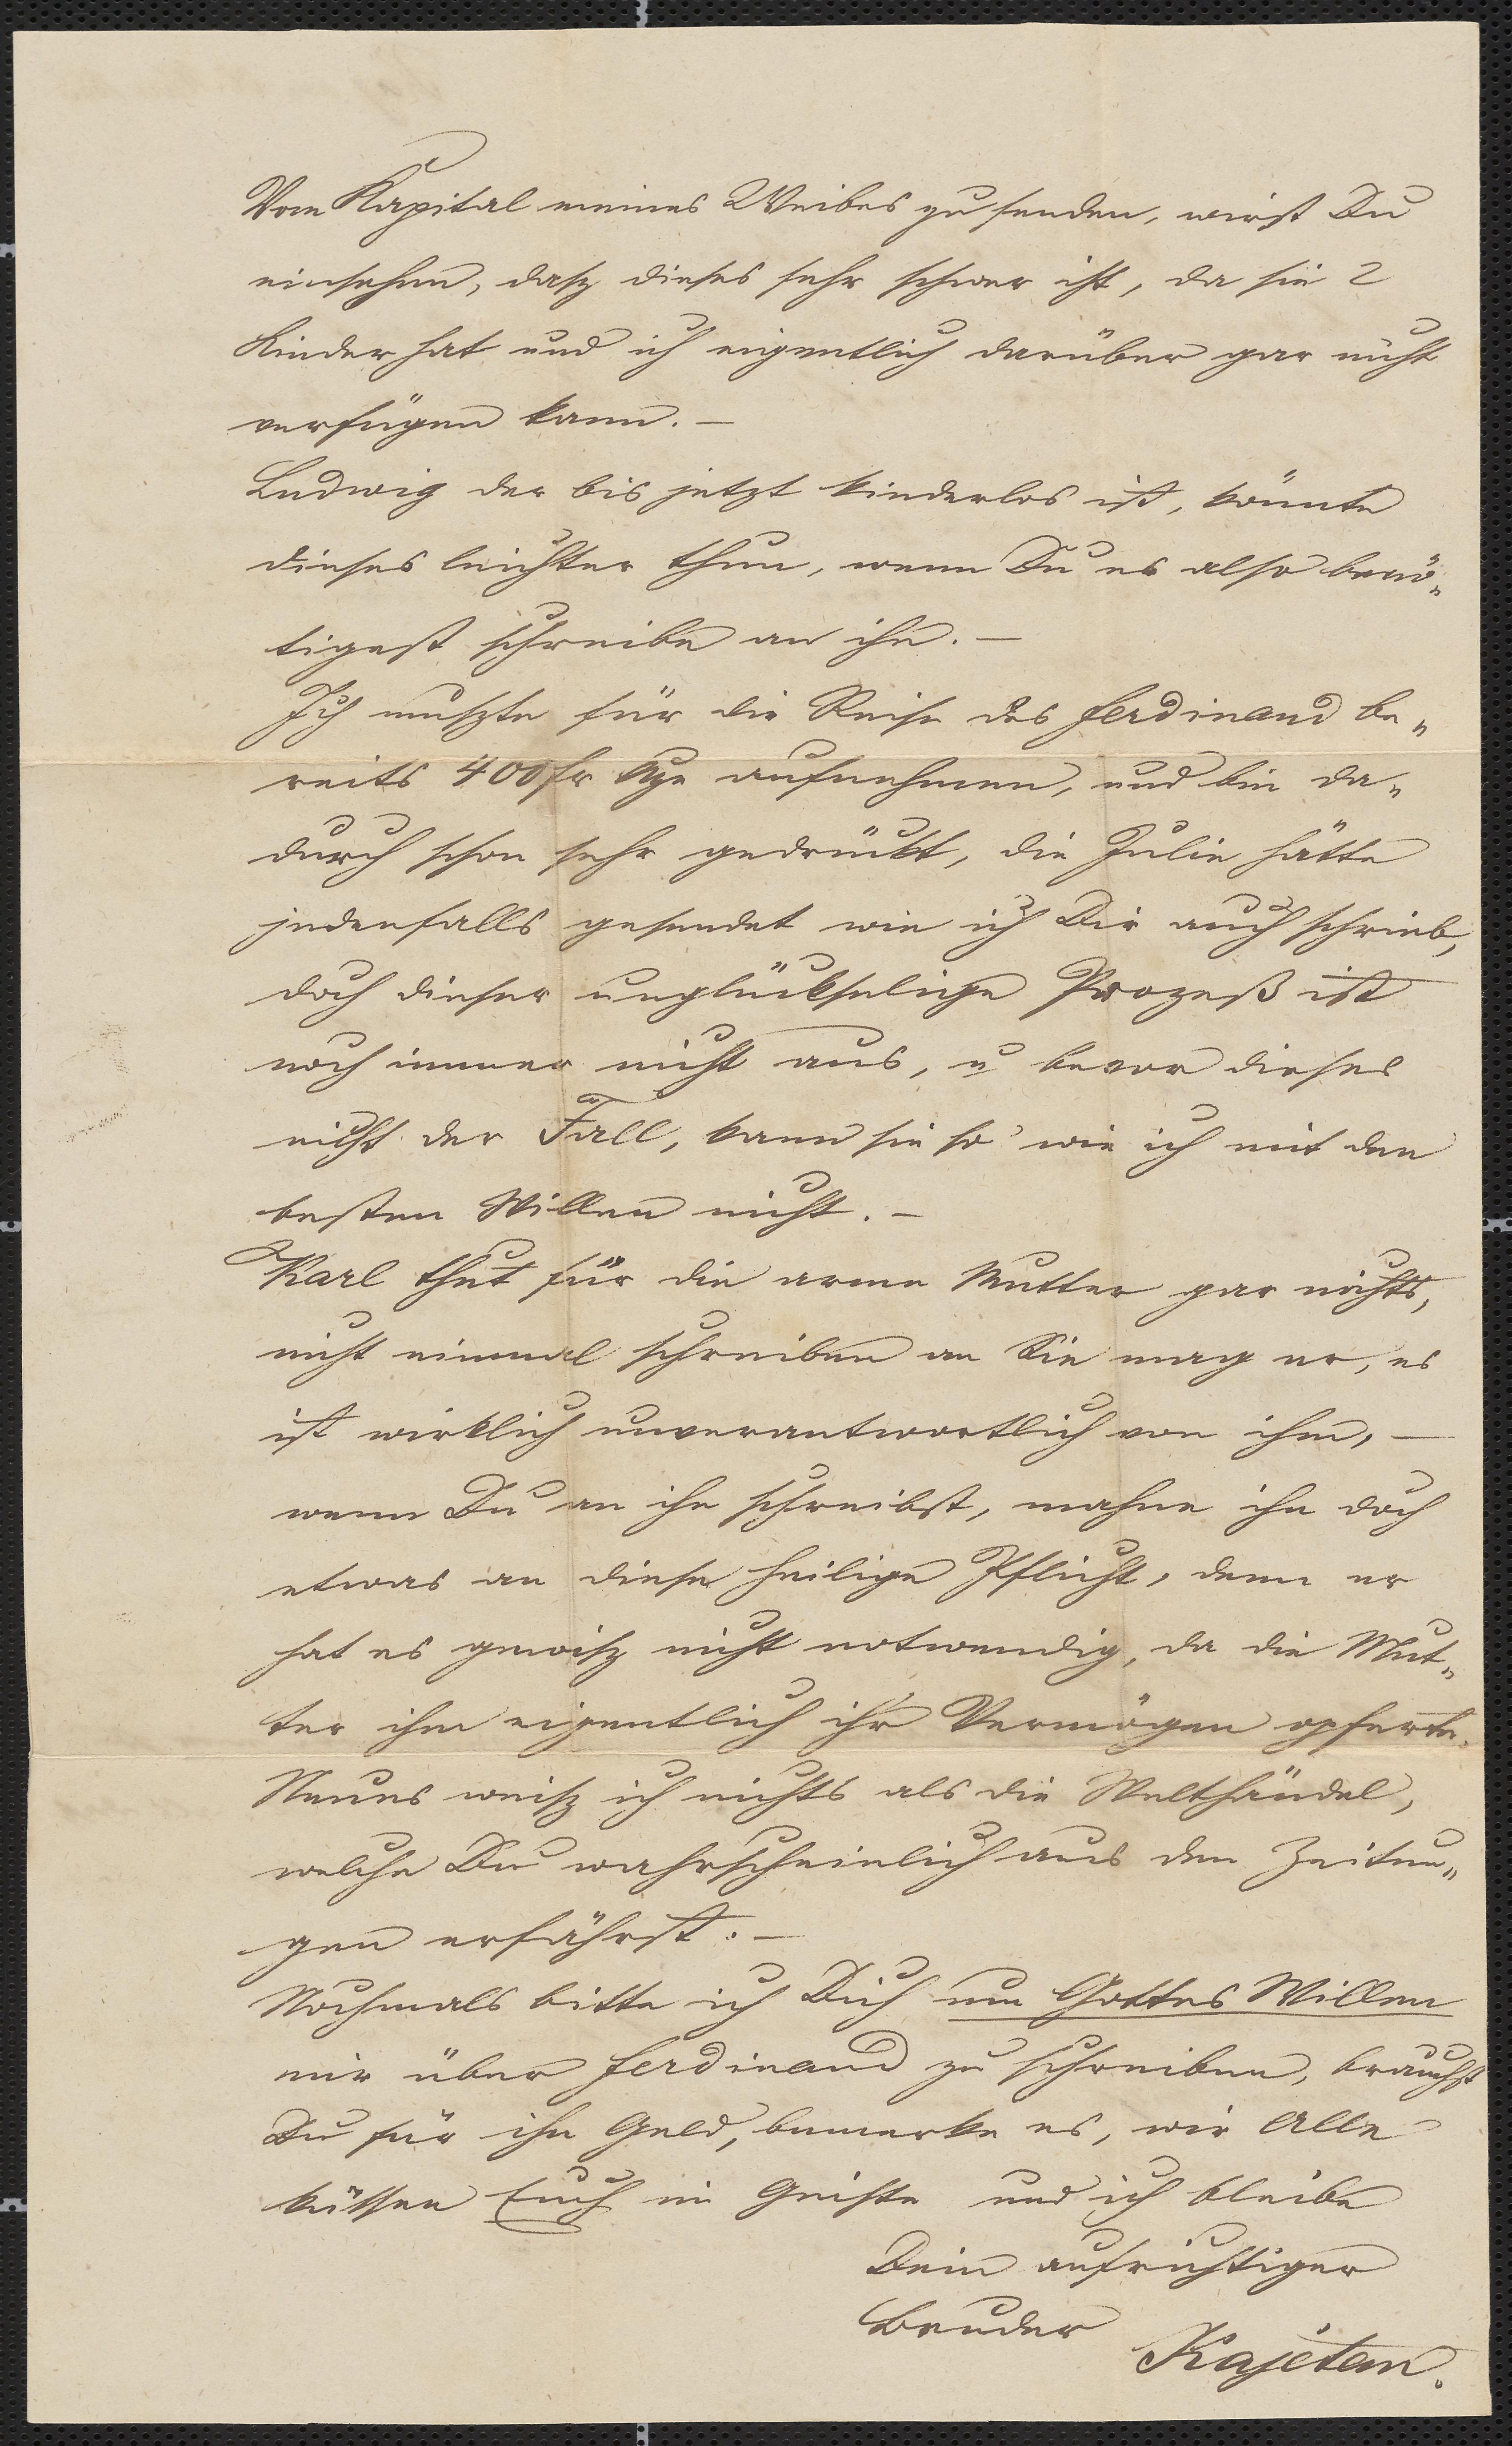 Vom Kapital meines Weibes zu senden, wirst Du
einsehen, dasz dieses sehr schwer ist, da sie 2
Kinder hat und ich eigentlich darüber gar nicht
verfügen kann. —
Ludwig der bis jetzt kinderlos ist, könnte
dieses leichter thun, wenn Du es also benö„
tigest schreibe an ihn. —
Ich muszte für die Reise des Ferdinand be„
reits 400 fr aufnehmen, und bin da„
durch schon sehr gedrückt, die Julie hätte
jedenfalls gesendet wie ich Dir auch schrieb,
doch dieser unglückselige Prozeß ist
noch immer nicht aus, u bevor dieses
nicht der Fall, kann sie so wie ich mit den
besten Willen nicht. —
Karl thut für die arme Mutter gar nichts,
nicht einmal schreiben an Sie mag er, es
ist wirklich unverantwortlich von ihm, —
wenn Du an ihn schreibst, mahne ihn doch
etwas an diese heilige Pflicht, denn er
hat es gewisz nicht notwendig, da die Mut„
ter ihm eigentlich ihr Vermögen opferte.
Neues weisz ich nichts als die Welthändel,
welche Du wahrscheinlich aus den Zeitun„
gen erfährst. —
Nochmals bitte ich Dich um Gottes Willen
mir über Ferdinand zu schreiben, brauchst
Du für ihn Geld, bemerke es, wir Alle
küssen Euch im Geiste und ich bleibe
Dein aufrichtiger
Bruder
Kajetan.